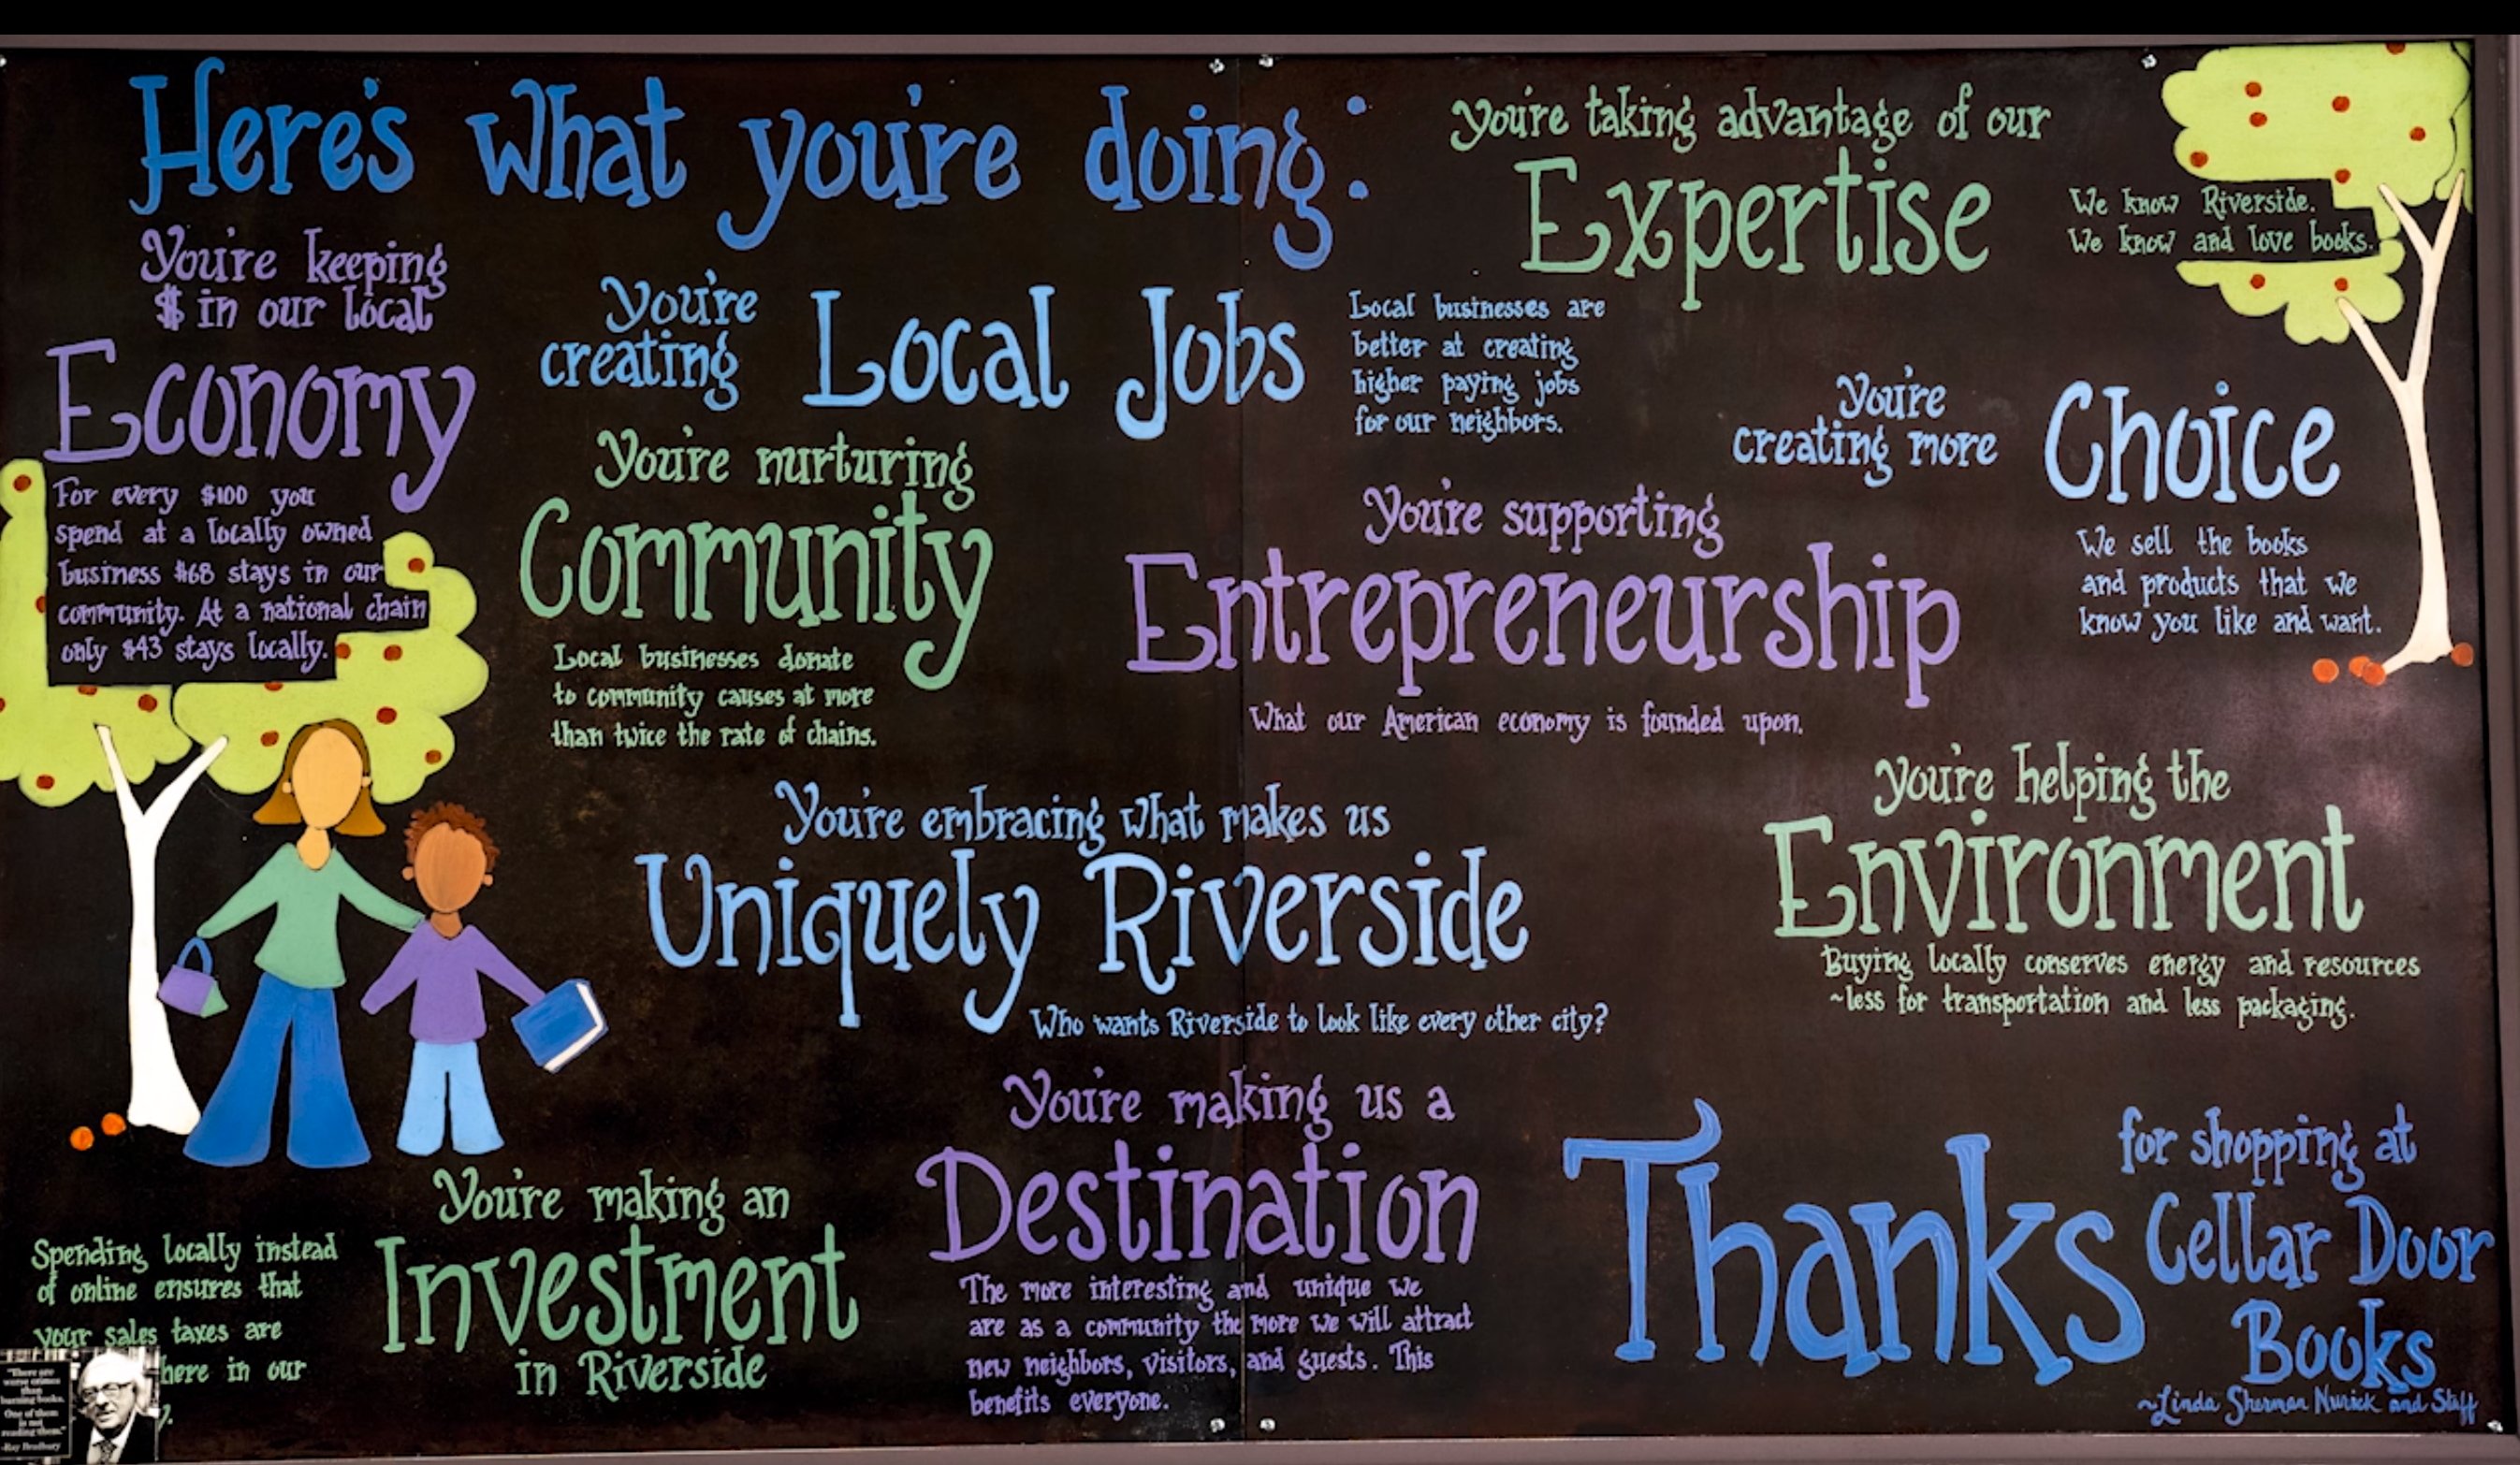 Here's what you're doing:
You're keeping
$ in our local
Economy
For every $100 you
spend at a locally owned
business $68 stays in our
community. At a national chain
only $43 stays locally.
You're
creating
Local Jobs
Local businesses are
better at creating
higher paying jobs
for our neighbors.
you're taking advantage of our
Expertise
We know Riverside.
We know and love books.
You're nurturing
Community
Local businesses donate
to community causes at more
than twice the rate of chains.
You're supporting
Entrepreneurship
What our American economy is founded upon.
You're
creating more
Choice
We sell the books
and products that we
know you like and want.
You're embracing what makes us
Uniquely Riverside
Who wants Riverside to look like every other city?
you're helping the
Environment
Buying locally conserves energy and resources
~less for transportation and less packaging.
You're making an
Investment
in Riverside
Spending locally instead
of online ensures that
your sales taxes are
here in our
y.
"There are
worse crimes
than
burning books.
One of them
is not
reading them."
-Ray Bradbury
You're making us a
Destination
The more interesting and unique we
are as a community the more we will attract
new neighbors, visitors, and guests. This
benefits everyone.
Thanks
for shopping at
Cellar Door
Books
~Linda Sherman Nurick and Staff